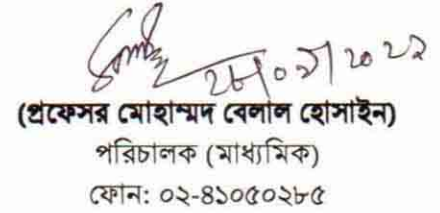 ২৮/০৯/২০২২
(প্রফেসর মোহাম্মদ বেলাল হোসাইন)
পরিচালক (মাধ্যমিক)
ফোন: ০২-৪১০৫০২৮৫